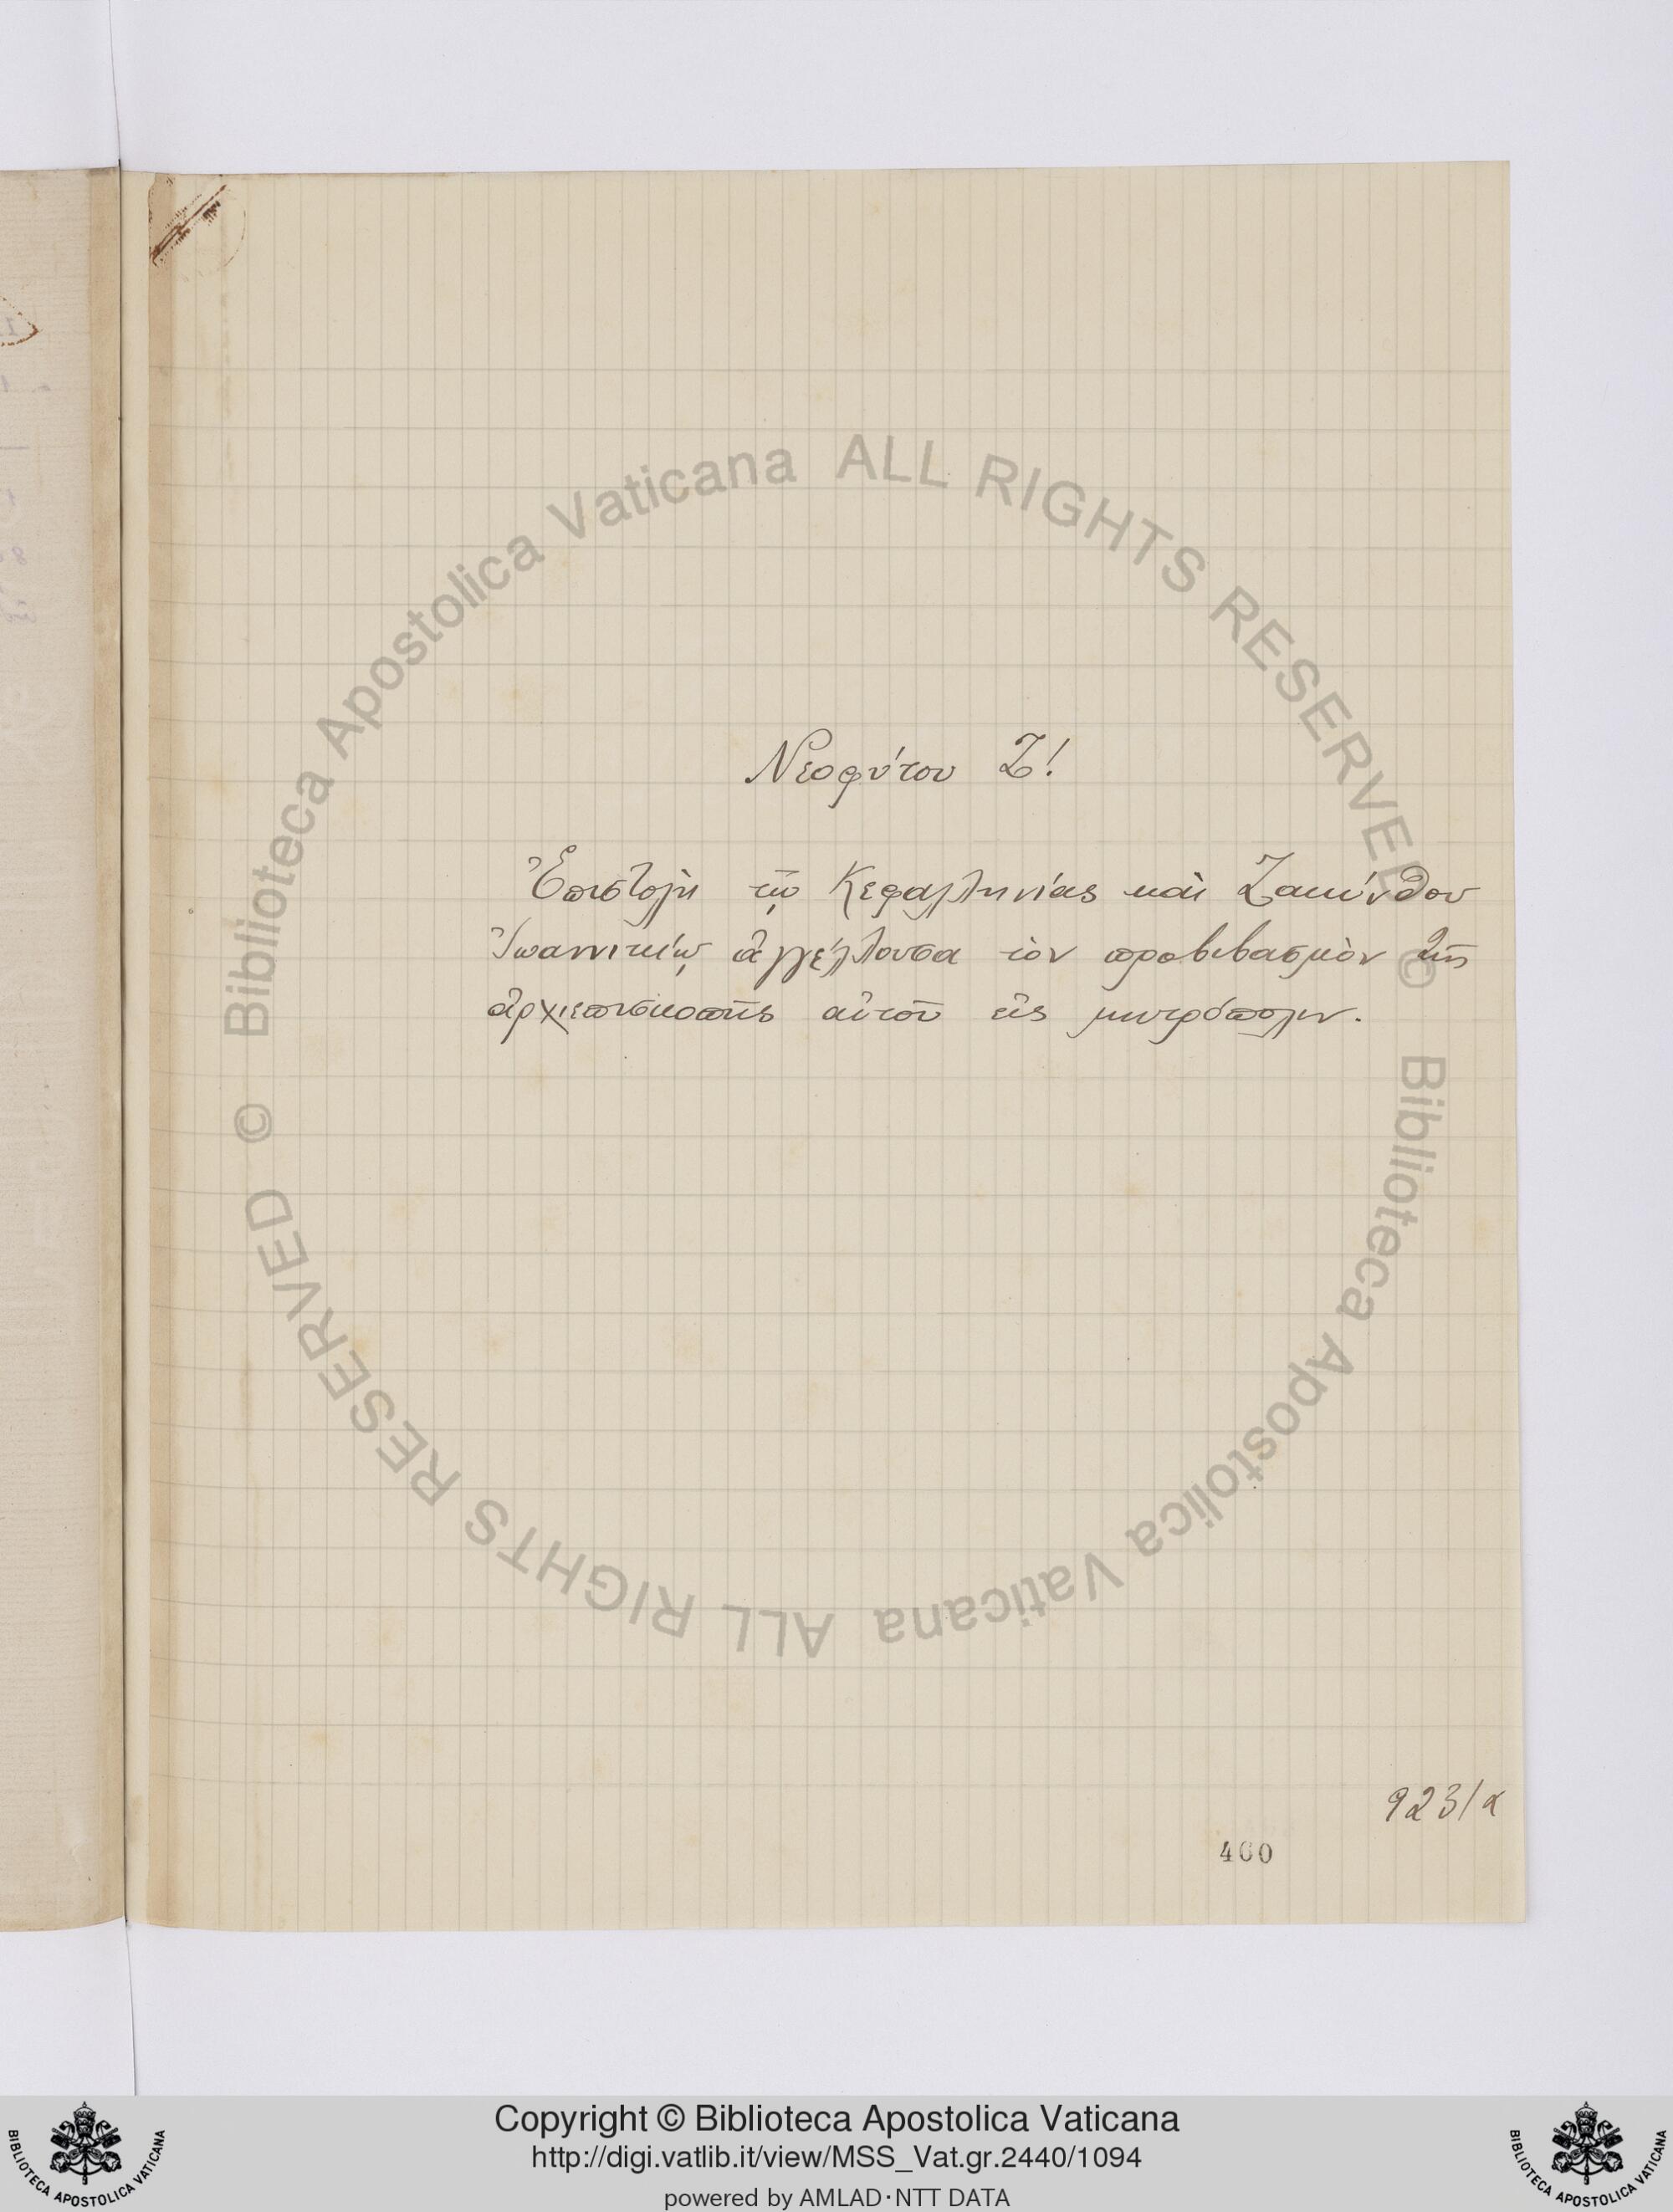 Νεοφύτου Ζ!
Ἐπιστολὴ τῷ Κεφαλληνίας καὶ Ζακύνθου
Ἰωαννικίῳ ἀγγέλλουσα τὸν προβιβασμὸν τῆς
ἀρχιεπισκοπῆς αὐτοῦ εἰς μητρόπολιν.
923/α
400
© Biblioteca Apostolica Vaticana ALL RIGHTS RESERVED
© Biblioteca Apostolica Vaticana ALL RIGHTS RESERVED
Copyright © Biblioteca Apostolica Vaticana
http://digi.vatlib.it/view/MSS_Vat.gr.2440/1094
powered by AMLAD·NTT DATA
BIBLIOTECA APOSTOLICA VATICANA
BIBLIOTECA APOSTOLICA VATICANA